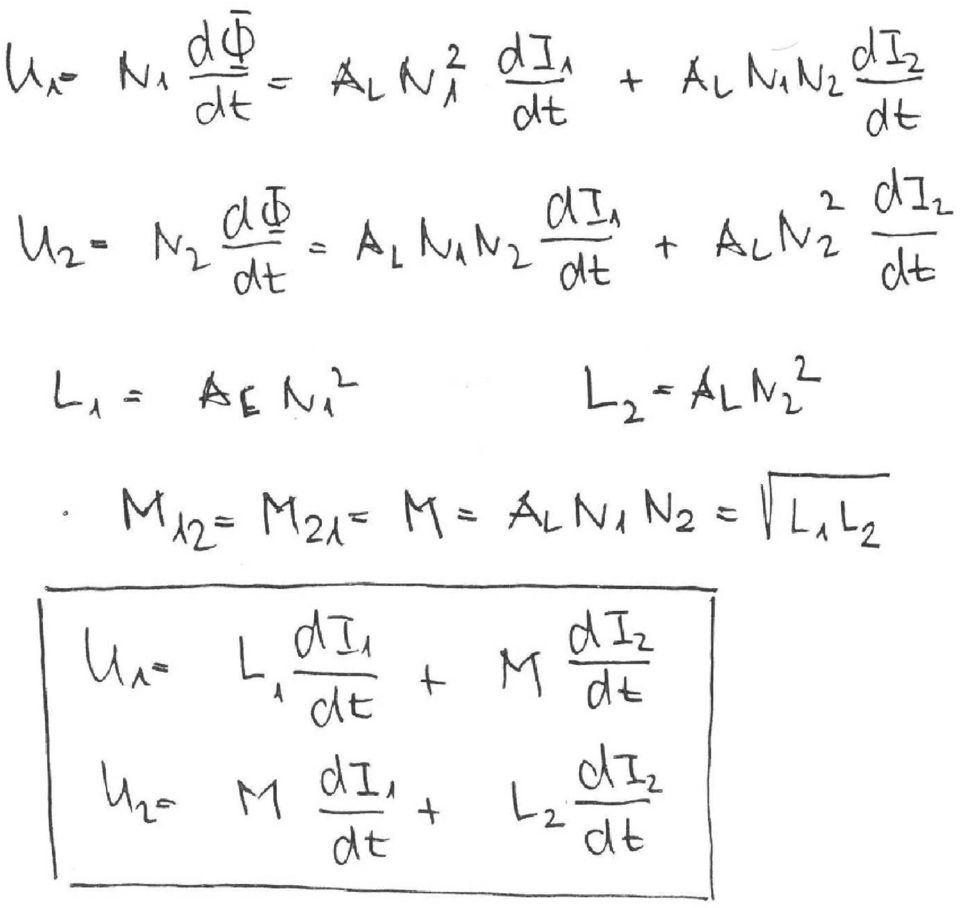 U₁= N₁ dΦ/dt = A_L N₁² dI₁/dt + A_L N₁N₂ dI₂/dt
U₂= N₂ dΦ/dt = A_L N₁N₂ dI₁/dt + A_L N₂² dI₂/dt
L₁ = A_E N₁² L₂ = A_L N₂²
M₁₂= M₂₁= M = A_L N₁ N₂ = √(L₁L₂)
U₁= L₁ dI₁/dt + M dI₂/dt
U₂= M dI₁/dt + L₂ dI₂/dt